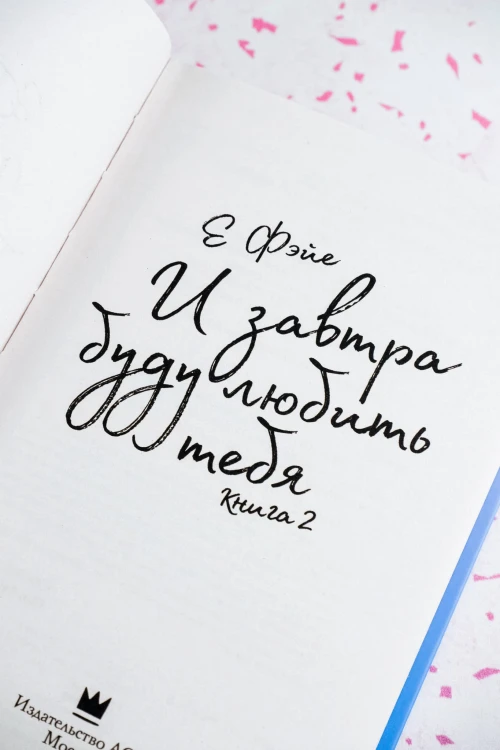 Е Фэйе
И завтра
буду любить
тебя
Книга 2
Издательство